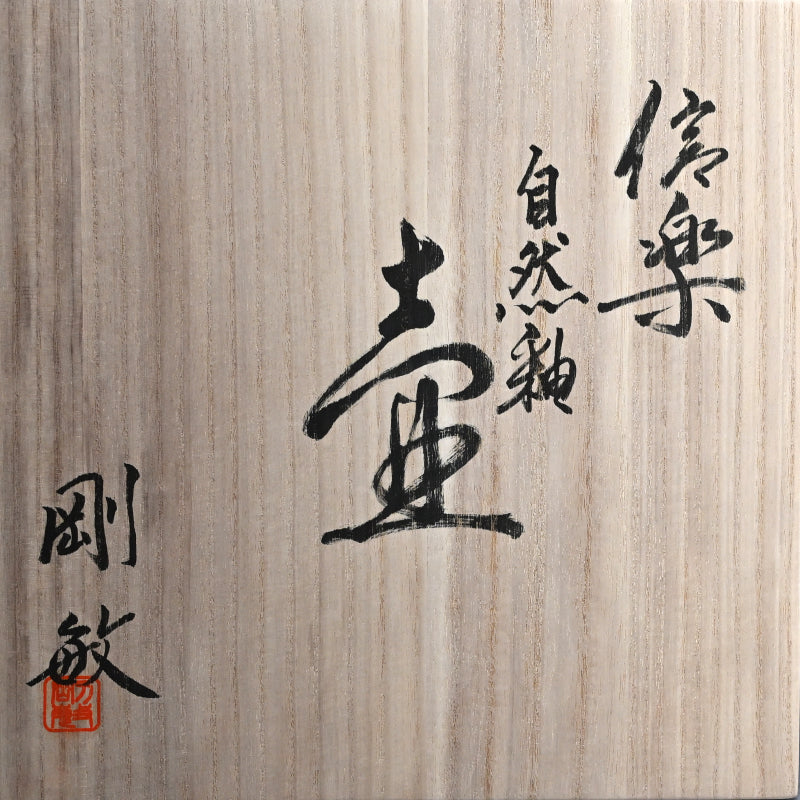 信楽
自然釉
壷
剛敏